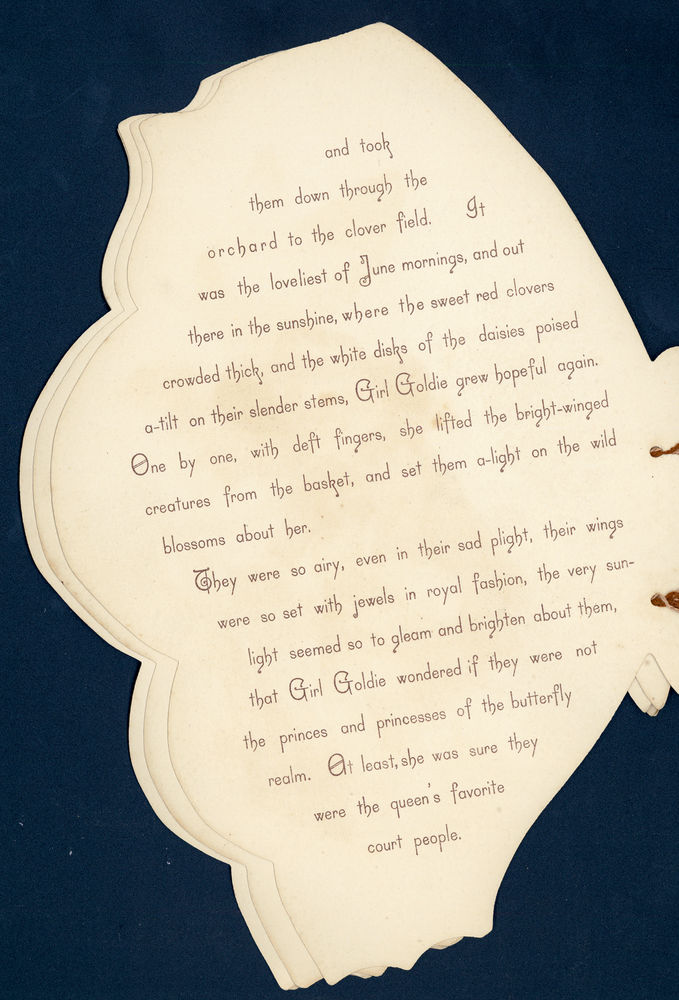 and took
them down through the
orchard to the clover field. It
was the loveliest of June mornings, and out
there in the sunshine, where the sweet red clovers
crowded thick, and the white disks of the daisies poised
a-tilt on their slender stems, Girl Goldie grew hopeful again.
One by one, with deft fingers, she lifted the bright-winged
creatures from the basket, and set them a-light on the wild
blossoms about her.
They were so airy, even in their sad plight, their wings
were so set with jewels in royal fashion, the very sun-
light seemed so to gleam and brighten about them,
that Girl Goldie wondered if they were not
the princes and princesses of the butterfly
realm. At least, she was sure they
were the queen's favorite
court people.